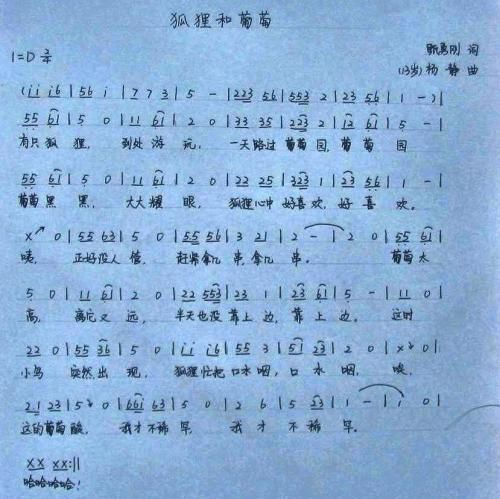 狐狸和葡萄
1=D 2/4
勇刚 词
(13岁) 杨静 曲
(i i i 6 | 5 6 i | 7 7 3 | 5 - | 2 2 3 5 6 | 5 5 3 2 | 2 3 5 6 | 1 - )|
5 5 6 1 | 5 0 | 1 1 6 1 | 2 0 | 3 3 3 5 | 2 2 3 2 | 1 2 6 1 | 5 - |
有只狐狸, 到处游玩, 一天路过葡萄园, 葡萄园
5 5 6 1 | 5 0 | 1 1 6 1 | 2 0 | 2 2 2 5 | 3 2 3 1 | 2 3 5 6 | 1 - |
葡萄黑黑, 大大耀眼, 狐狸心中好喜欢, 好喜欢.
x 0 | 5 5 6 3 | 5 0 | 5 5 5 6 | 3 2 1 | 2 - | 2 0 | 5 5 6 1 |
咦, 正好没人值, 赶紧拿几串, 拿几串. 葡萄太
5 0 | 1 1 6 1 | 2 0 | 2 2 5 5 3 | 2 3 1 | 2 3 6 1 | 5 - | 1 1 0 |
高, 离它又远, 半天也没靠上边, 靠上边. 这时
2 2 0 | 5 5 3 6 | 5 0 | i i i 6 | 5 5 3 | 5 1 2 3 | 2 0 | x 0 |
小鸟 突然出现, 狐狸忙把口水咽, 口水咽, 唉,
2 1 2 3 | 5 0 | 6 6 i 6 3 | 5 0 | 2 6 | 5 5 3 | 1 - | i 0 |
这的葡萄酸, 我才不稀罕, 我才不稀罕.
x x x x :||
哈哈哈哈!